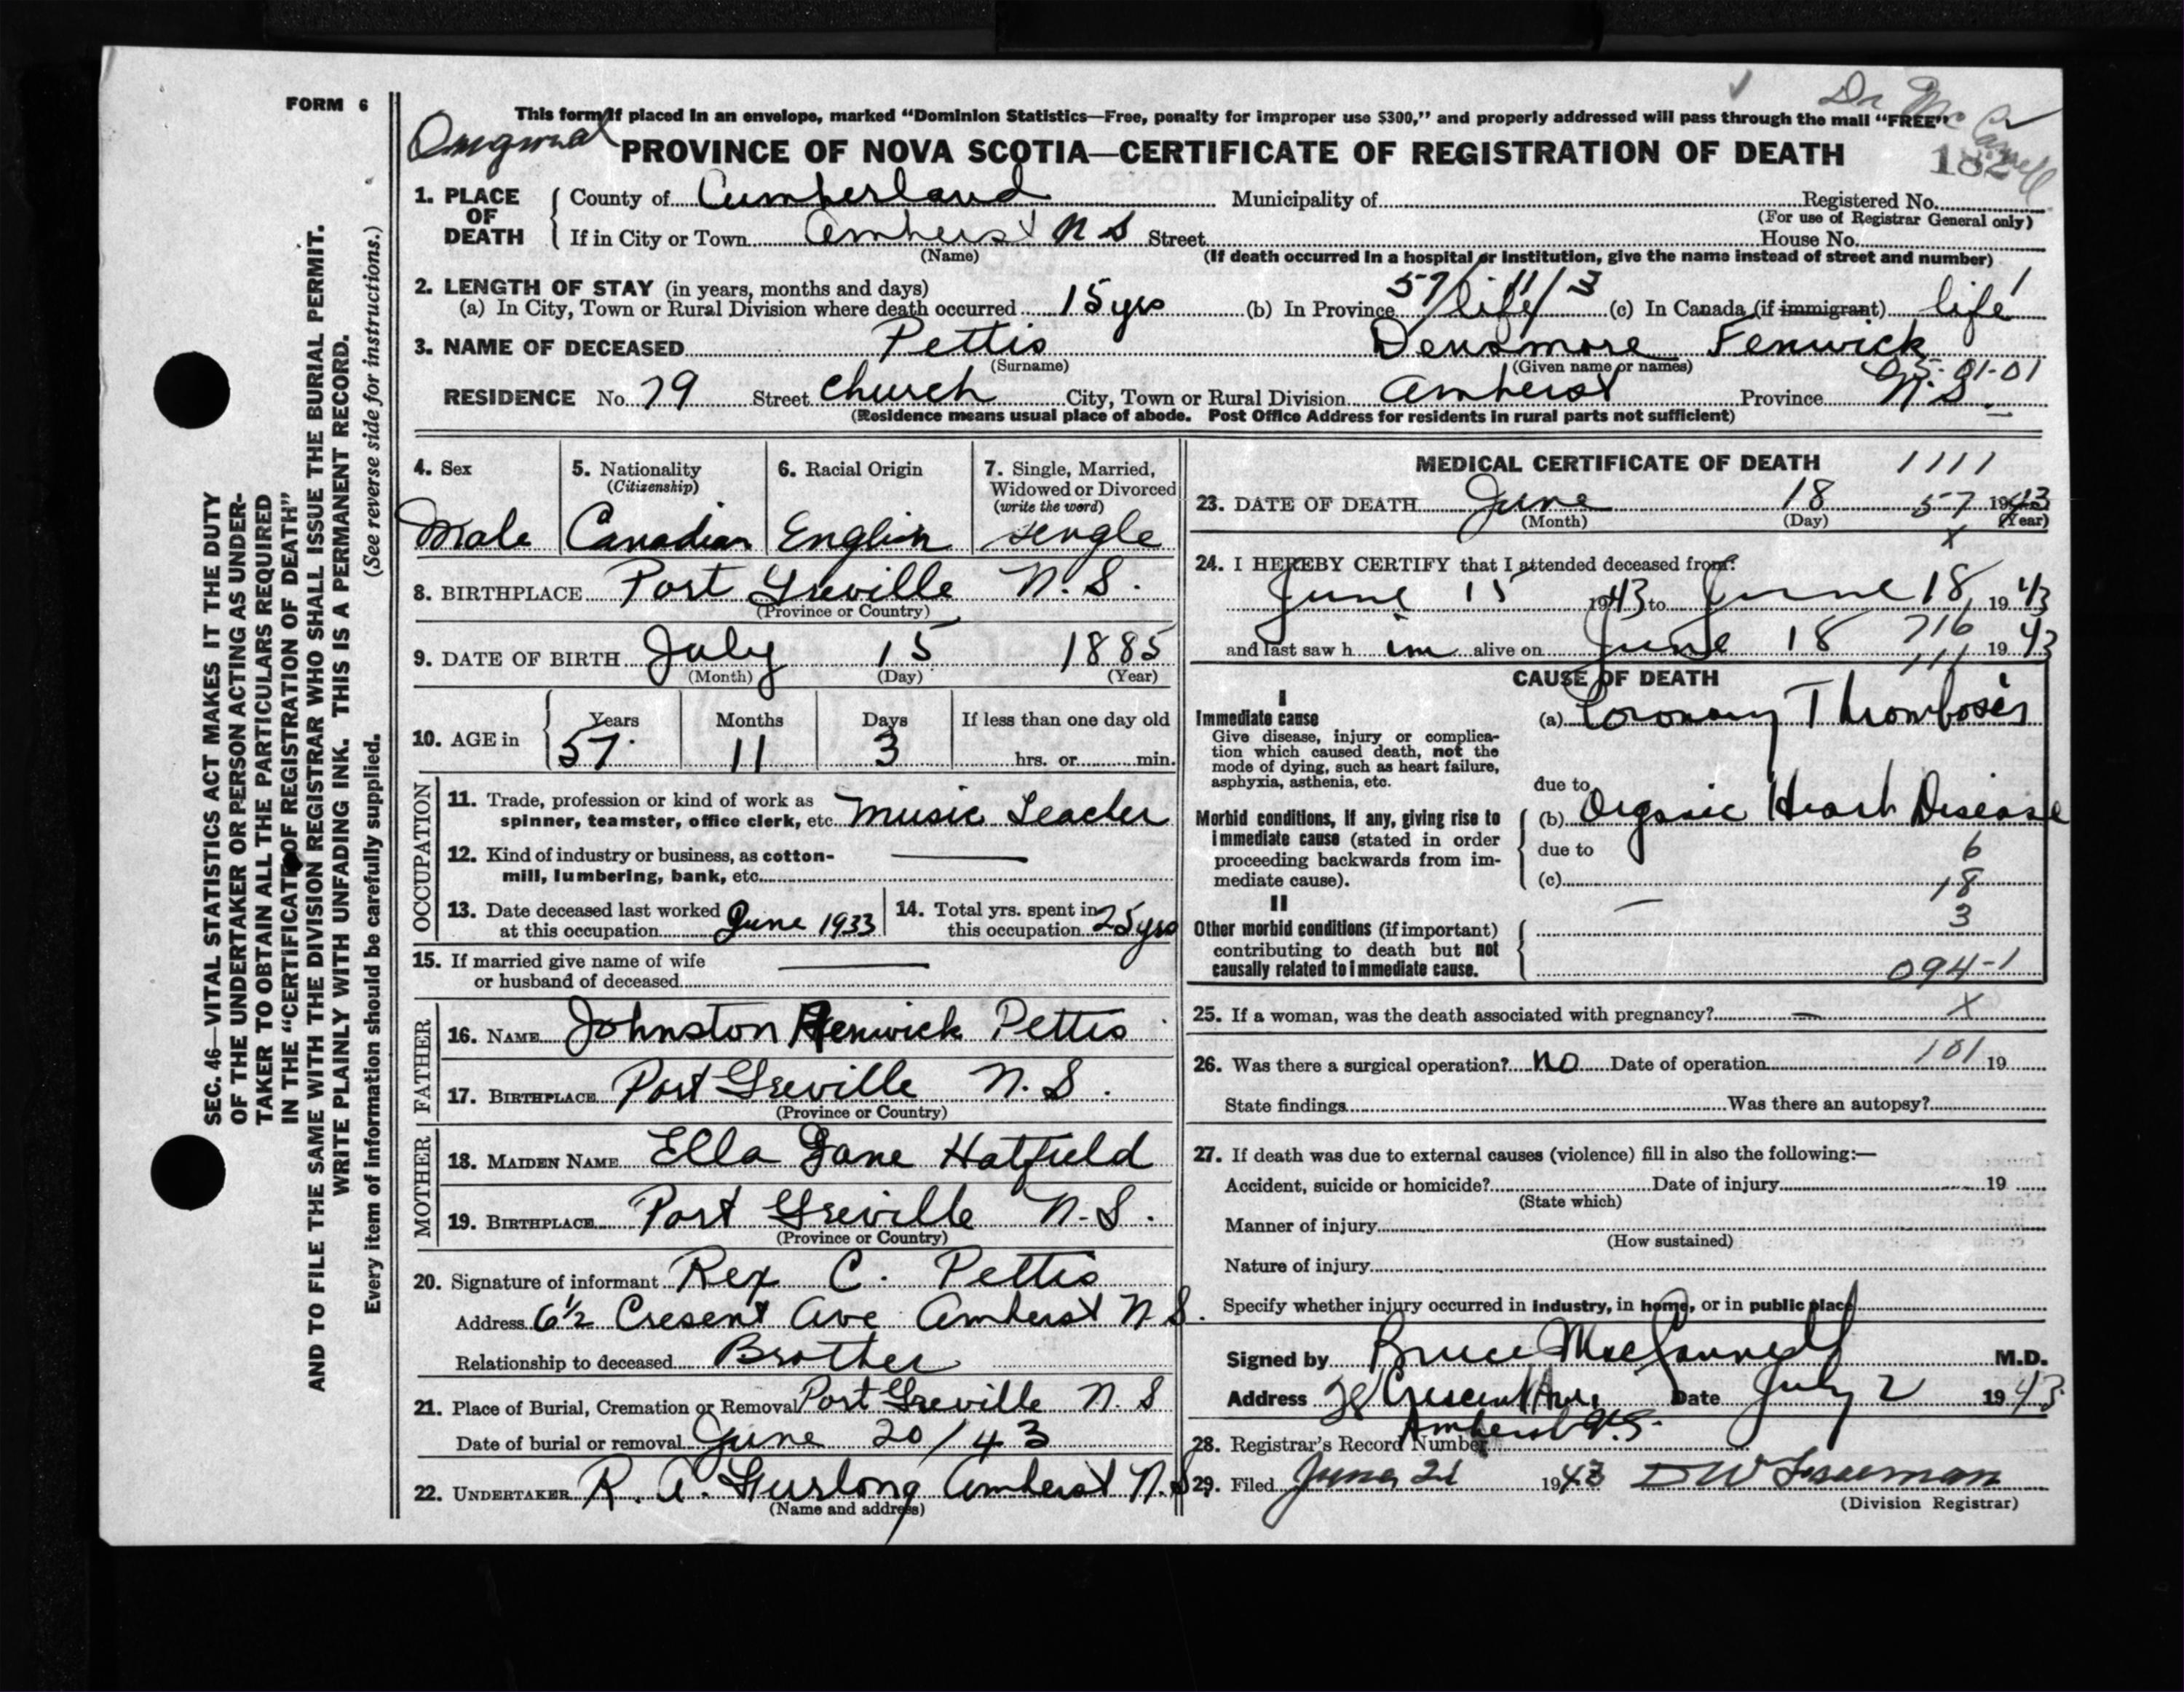 FORM 6
This form if placed in an envelope, marked “Dominion Statistics—Free, penalty for improper use $300,” and properly addressed will pass through the mail “FREE”
Original
PROVINCE OF NOVA SCOTIA—CERTIFICATE OF REGISTRATION OF DEATH
1. PLACE OF DEATH
County of Cumberland Municipality of Registered No.
(For use of Registrar General only)
If in City or Town Amherst N S Street House No.
(Name) (If death occurred in a hospital or institution, give the name instead of street and number)
2. LENGTH OF STAY (in years, months and days) 57/11/3
(a) In City, Town or Rural Division where death occurred 15 yrs (b) In Province life (c) In Canada (if immigrant) life
3. NAME OF DECEASED Pettis Densmore Fenwick
(Surname) (Given name or names)
RESIDENCE No. 79 Street Church City, Town or Rural Division Amherst Province N.S.
(Residence means usual place of abode. Post Office Address for residents in rural parts not sufficient)
4. Sex Male
5. Nationality (Citizenship) Canadian
6. Racial Origin English
7. Single, Married, Widowed or Divorced (write the word) single
8. BIRTHPLACE Port Greville N.S.
(Province or Country)
9. DATE OF BIRTH July 15 1885
(Month) (Day) (Year)
10. AGE in Years 57 Months 11 Days 3 If less than one day old hrs. or min.
OCCUPATION
11. Trade, profession or kind of work as
spinner, teamster, office clerk, etc. Music Teacher
12. Kind of industry or business, as cotton-
mill, lumbering, bank, etc. —
13. Date deceased last worked
at this occupation June 1933
14. Total yrs. spent in
this occupation 25 yrs
15. If married give name of wife
or husband of deceased —
FATHER
16. NAME Johnston Fenwick Pettis
17. BIRTHPLACE Port Greville N.S.
(Province or Country)
MOTHER
18. MAIDEN NAME Ella Jane Hatfield
19. BIRTHPLACE Port Greville N.S.
(Province or Country)
20. Signature of informant Rex C. Pettis
Address 6½ Cresent Ave Amherst N S.
Relationship to deceased Brother
21. Place of Burial, Cremation or Removal Port Greville N. S
Date of burial or removal June 20/43
22. UNDERTAKER R. A. Furlong Amherst N.S
(Name and address)
MEDICAL CERTIFICATE OF DEATH 1111
23. DATE OF DEATH June 18 57 1943
(Month) (Day) (Year)
x
24. I HEREBY CERTIFY that I attended deceased from:
June 15 1943 to June 18, 1943
and last saw h im alive on June 18 1943
CAUSE OF DEATH
I
Immediate cause
Give disease, injury or complica-
tion which caused death, not the
mode of dying, such as heart failure,
asphyxia, asthenia, etc.
(a) Coronary Thrombosis
due to
Morbid conditions, if any, giving rise to
immediate cause (stated in order
proceeding backwards from im-
mediate cause).
(b) Organic Heart Disease
due to 6
(c) 18
II
Other morbid conditions (if important)
contributing to death but not
causally related to immediate cause.
3
094-1
25. If a woman, was the death associated with pregnancy? — X
26. Was there a surgical operation? no Date of operation 101 19
State findings Was there an autopsy?
27. If death was due to external causes (violence) fill in also the following:—
Accident, suicide or homicide? Date of injury 19
(State which)
Manner of injury
(How sustained)
Nature of injury
Specify whether injury occurred in industry, in home, or in public place
Signed by Bruce MacConnell M.D.
Address Crescent Ave. Date July 2 1943
Amherst N.S.
28. Registrar's Record Number
29. Filed June 21 1943
(Division Registrar)
SEC. 46—VITAL STATISTICS ACT MAKES IT THE DUTY
OF THE UNDERTAKER OR PERSON ACTING AS UNDER-
TAKER TO OBTAIN ALL THE PARTICULARS REQUIRED
IN THE “CERTIFICATE OF REGISTRATION OF DEATH”
AND TO FILE THE SAME WITH THE DIVISION REGISTRAR WHO SHALL ISSUE THE BURIAL PERMIT.
WRITE PLAINLY WITH UNFADING INK. THIS IS A PERMANENT RECORD.
Every item of information should be carefully supplied. (See reverse side for instructions.)